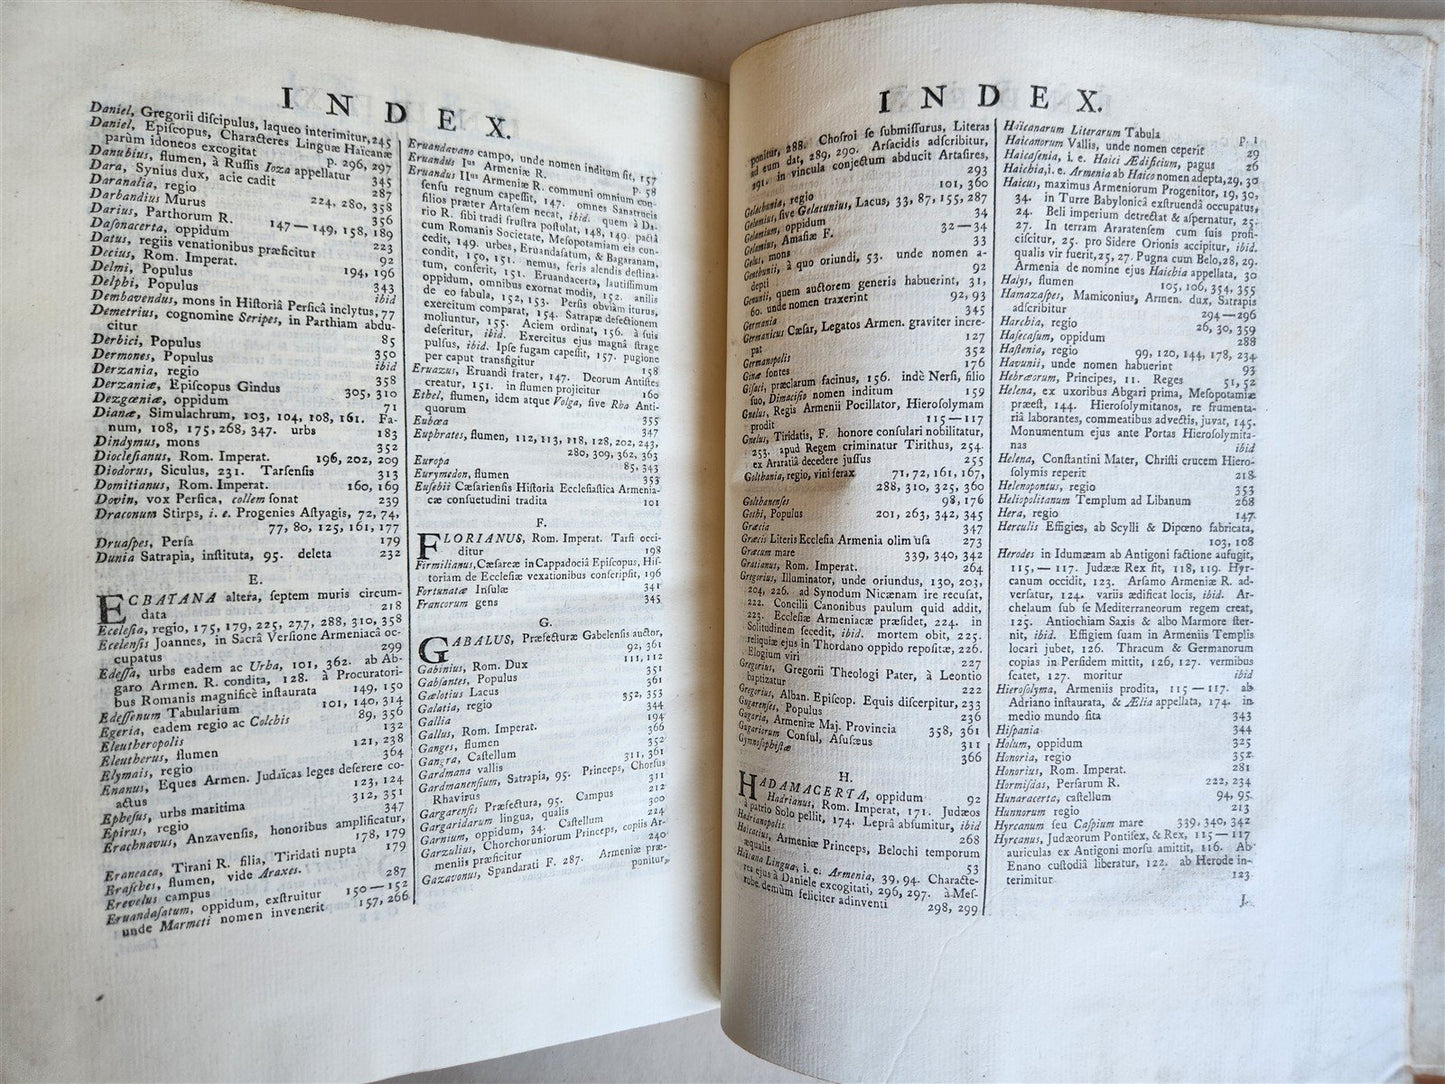 INDEX.
Daniel, Gregorii diſcipulus, laqueo interimitur, 245
Daniel, Epiſcopus, Characteres Linguæ Haïcanæ
parùm idoneos excogitat p. 296, 297
Danubius, flumen, à Ruſſis Ioza appellatur 345
Dara, Synius dux, acie cadit 287
Daranalia, regio 224, 280, 358
Darbandius Murus 356
Darius, Parthorum R. 147—149, 158, 189
Daſonacerta, oppidum 223
Datus, regiis venationibus præficitur 92
Decius, Rom. Imperat. 194, 196
Delmi, Populus 343
Delphi, Populus ibid
Dembavendus, mons in Hiſtoriâ Perſicâ inclytus, 77
Demetrius, cognomine Seripes, in Parthiam abdu-
citur 85
Derbici, Populus 350
Dermones, Populus ibid
Derzania, regio 358
Derzaniæ, Epiſcopus Gindus 305, 310
Dezgœniæ, oppidum 71
Dianæ, Simulachrum, 103, 104, 108, 161. Fa-
num, 108, 175, 268, 347. urbs 183
Dindymus, mons 352
Diocleſianus, Rom. Imperat. 196, 202, 209
Diodorus, Siculus, 231. Tarſenſis 313
Domitianus, Rom. Imperat. 160, 169
Dovin, vox Perſica, collem ſonat 239
Draconum Stirps, i. e. Progenies Aſtyagis, 72, 74,
77, 80, 125, 161, 177
Druaſpes, Perſa 179
Dunia Satrapia, inſtituta, 95. deleta 232
E.
ECBATANA altera, ſeptem muris circum-
data 218
Eceleſia, regio, 175, 179, 225, 277, 288, 310, 358
Ecelenſis Joannes, in Sacrâ Verſione Armeniacâ oc-
cupatus 299
Edeſſa, urbs eadem ac Urba, 101, 362. ab Ab-
garo Armen. R. condita, 128. à Procuratori-
bus Romanis magnificè inſtaurata 149, 150
Edeſſenum Tabularium 101, 140, 314
Egeria, eadem regio ac Colchis 89, 356
Eleutheropolis 132
Eleutherus, flumen 121, 238
Elymais, regio 364
Enanus, Eques Armen. Judaïcas leges deferere co-
actus 123, 124
Epheſus, urbs maritima 312, 351
Epirus, regio 347
Erachnavus, Anzavenſis, honoribus amplificatur,
178, 179
Eraneaca, Tirani R. filia, Tiridati nupta 179
Eraſches, flumen, vide Araxes.
Erevelus campus 287
Eruandaſatum, oppidum, exſtruitur 150—152
unde Marmeti nomen invenerit 157, 266
Eruandavano campo, unde nomen inditum ſit, 157
Eruandus Ius Armeniæ R. p. 58
Eruandus IIus Armeniæ R. communi omnium con-
ſenſu regnum capeſſit, 147. omnes Sanatrucis
filios præter Artaſem necat, ibid. quem à Da-
rio R. ſibi tradi fruſtra poſtulat, 148, 149. pactâ
cum Romanis Societate, Meſopotamiam eis con-
cedit, 149. urbes, Eruandaſatum, & Bagaranam,
condit, 150, 151. nemus, feris alendis deſtina-
tum, conſerit, 151. Eruandacerta, lautiſſimum
oppidum, omnibus exornat modis, 152. anilis
de eo fabula, 152, 153. Perſis obviàm iturus,
exercitum comparat, 154. Satrapæ defectionem
moliuntur, 155. Aciem ordinat, 156. à ſuis
deſeritur, ibid. Exercitus ejus magnâ ſtrage
pulſus, ibid. Ipſe fugam capeſſit, 157. pugione
per caput transfigitur 158
Eruazus, Eruandi frater, 147. Deorum Antiſtes
creatur, 151. in flumen projicitur 160
Ethel, flumen, idem atque Volga, ſive Rha Anti-
quorum 355
Eubœa 347
Euphrates, flumen, 112, 113, 118, 128, 202, 243,
280, 309, 362, 363
Europa 85, 343
Eurymedon, flumen 353
Euſebii Cæſarienſis Hiſtoria Eccleſiaſtica Armenia-
cæ conſuetudini tradita 101
F.
FLORIANUS, Rom. Imperat. Tarſi occi-
ditur 198
Firmilianus, Cæſareæ in Cappadociâ Epiſcopus, Hiſ-
toriam de Eccleſiæ vexationibus conſcripſit, 196
Fortunatæ Inſulæ 341
Francorum gens 345
G.
GABALUS, Præfecturæ Gabelenſis auctor,
92, 361
Gabinius, Rom. Dux 111, 112
Gabſantes, Populus 351
Gælotius Lacus 361
Galatia, regio 352, 353
Gallia 344
Gallus, Rom. Imperat. 194
Ganges, flumen 366
Gangra, Caſtellum 352
Gardmana vallis 311, 361
Gardmanenſium, Satrapia, 95. Princeps, Chorſus
Rhavirus 311
Gargarenſis Præfectura, 95. Campus 212
Gargaridarum lingua, qualis 300
Garnium, oppidum, 34. Caſtellum 224
Garzulius, Chorchoruniorum Princeps, copiis Ar-
meniis præficitur 240
Gazavonus, Spandarati F. 287. Armeniæ præ-
ponitur,
INDEX.
ponitur, 288. Choſroi ſe ſubmiſſurus, Literas
ad eum dat, 289, 290. Arſacidis adſcribitur,
291. in vincula conjectum abducit Artaſires,
293
Gelachania, regio 101, 360
Gelamius, ſive Gelacunius, Lacus, 33, 87, 155, 287
Gelamium, oppidum 34
Gelamius, Amaſiæ F. 32—34
Gelus, mons 33
Genthunii, à quo oriundi, 53. unde nomen a-
depti 92
Genunii, quem auctorem generis habuerint, 31,
60. unde nomen traxerint 92, 93
Germania 345
Germanicus Cæſar, Legatos Armen. graviter incre-
pat 127
Germanopolis 352
Ginæ fontes 176
Giſaci, præclarum facinus, 156. indè Nerſi, filio
ſuo, Dimacſio nomen inditum 159
Gnelus, Regis Armenii Pocillator, Hieroſolymam
prodit 115—117
Gnelus, Tiridatis, F. honore conſulari nobilitatur,
253. apud Regem criminatur Tirithus, 254.
ex Araratiâ decedere juſſus 255
Golthania, regio, vini ferax 71, 72, 161, 167,
288, 310, 325, 360
Golthanenſes 98, 176
Gothi, Populus 201, 263, 342, 345
Græcia 347
Græcis Literis Eccleſia Armenia olim uſa 273
Græcum mare 339, 340, 342
Gratianus, Rom. Imperat. 264
Gregorius, Illuminator, unde oriundus, 130, 203,
204, 226. ad Synodum Nicænam ire recuſat,
222. Concilii Canonibus paulum quid addit,
223. Eccleſiæ Armeniacæ præſidet, 224. in
Solitudinem ſecedit, ibid. mortem obit, 225.
reliquiæ ejus in Thordano oppido repoſitæ, 226.
Elogium viri 227
Gregorius, Gregorii Theologi Pater, à Leontio
baptizatur 222
Gregorius, Alban. Epiſcop. Equis diſcerpitur, 233
Gugarenſes, Populus 236
Gugaria, Armeniæ Maj. Provincia 358, 361
Gugariorum Conſul, Aſuſæus 311
Gymnoſophiſtæ 366
H.
HADAMACERTA, oppidum 92
Hadrianus, Rom. Imperat, 171. Judæos
à patrio Solo pellit, 174. Leprâ abſumitur, ibid
Hadrianopolis 268
Haicatius, Armeniæ Princeps, Belochi temporum
æqualis 53
Haïcana Lingua, i. e. Armenia, 39, 94. Characte-
res ejus à Daniele excogitati, 296, 297. à Meſ-
robe demùm feliciter adinventi 298, 299
Haïcanarum Literarum Tabula p. 1
Haïcanorum Vallis, unde nomen ceperit 29
Haicaſenia, i. e. Haici Ædificium, pagus 26
Haichia, i. e. Armenia ab Haico nomen adepta, 29, 30
Haicus, maximus Armeniorum Progenitor, 19, 30,
34. in Turre Babylonicâ exſtruendâ occupatus,
24. Beli imperium detrectat & aſpernatur, 25.
27. in terram Araratenſem cum ſuis profi-
ciſcitur, 25. pro Sidere Orionis accipitur, ibid.
qualis vir fuerit, 25, 27. Pugna cum Belo, 28, 29.
Armenia de nomine ejus Haichia appellata, 30
Halys, flumen 105, 106, 354, 355
Hamazaſpes, Mamiconius, Armen. dux, Satrapis
adſcribitur 294—296
Harchia, regio 26, 30, 359
Haſecaſum, oppidum 288
Haſtenia, regio 99, 120, 144, 178, 234
Havunii, unde nomen habuerint 93
Hebræorum, Principes, 11. Reges 51, 52
Helena, ex uxoribus Abgari prima, Meſopotamiæ
præeſt, 144. Hieroſolymitanos, re frumenta-
riâ laborantes, commeatibus advectis, juvat, 145.
Monumentum ejus ante Portas Hieroſolymita-
nas ibid
Helena, Conſtantini Mater, Chriſti crucem Hiero-
ſolymis reperit 218
Helenopontus, regio 353
Heliopolitanum Templum ad Libanum 268
Hera, regio 147
Herculis Effigies, ab Scylli & Dipœno fabricata,
103, 108
Herodes in Idumæam ab Antigoni factione aufugit,
115,—117. Judææ Rex fit, 118, 119. Hyr-
canum occidit, 123. Arſamo Armeniæ R. ad-
verſatur, 124. variis ædificat locis, ibid. Ar-
chelaum ſub ſe Mediterraneorum regem creat,
125. Antiochiam Saxis & albo Marmore ſter-
nit, ibid. Effigiem ſuam in Armeniis Templis
locari jubet, 126. Thracum & Germanorum
copias in Perſidem mittit, 126, 127. vermibus
ſcatet, 127. moritur ibid
Hieroſolyma, Armeniis prodita, 115—117. ab
Adriano inſtaurata, & Ælia appellata, 174. in
medio mundo ſita 343
Hiſpania 344
Holum, oppidum 325
Honoria, regio 352
Honorius, Rom. Imperat. 281
Hormiſdas, Perſarum R. 222, 234
Hunaracerta, caſtellum 94, 95
Hunnorum regio 213
Hyrcanum ſeu Caſpium mare 339, 340, 342
Hyrcanus, Judæorum Pontifex, & Rex, 115—117
auriculas ex Antigoni morſu amittit, 116. Ab
Enano cuſtodiâ liberatur, 122. ab Herode in-
terimitur 123
I.